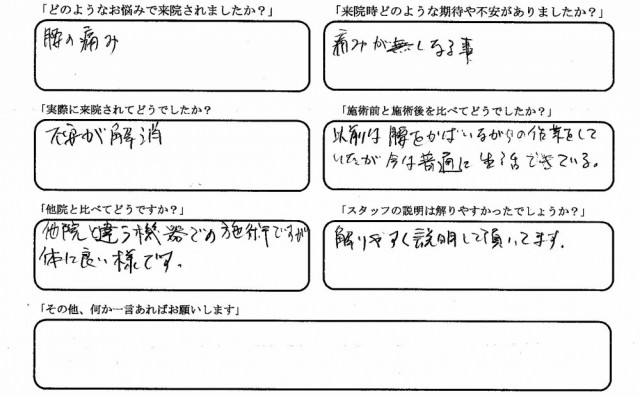 「どのようなお悩みで来院されましたか？」
腰の痛み
「来院時どのような期待や不安がありましたか？」
痛みが無しなる事
「実際に来院されてどうでしたか？
不安が解消
「施術前と施術後を比べてどうでしたか？
以前は腰をかばいながらの作業をして
いたが今は普通に生活できている。
「他院と比べてどうですか？」
他院と違う機器での施術ですが
体に良い様です。
「スタッフの説明は解りやすかったでしょうか？
解りやすく説明して頂いてます.
「その他、何か一言あればお願いします」